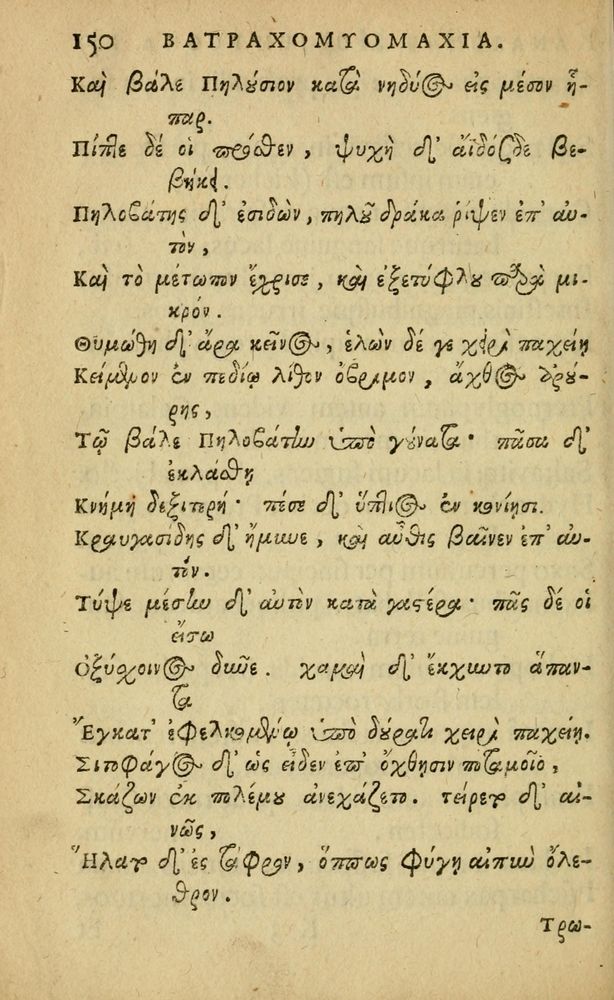 150 ΒΑΤΡΑΧΟΜΥΟΜΑΧΙΑ.
Καὶ βάλε Πηλούσιον κατὰ νηδύος εἰς μέσον ἧ-
παρ.
Πίπτε δέ οἱ πρόσθεν, ψυχὴ δ' ἀϊδόσδε βε-
βήκει.
Πηλοβάτης δ' ἐσιδὼν, πηλοῦ δράκα ῥίψεν ἐπ' αὐ-
τὸν,
Καὶ τὸ μέτωπον ἔχρισε, καὶ ἐξετύφλου παρὰ μι-
κρόν.
Θυμώθη δ' ἄρα κεῖνος, ἑλὼν δέ γε χειρὶ παχείῃ
Κείμενον ἐν πεδίῳ λίθον ὄβριμον, ἄχθος ἀρού-
ρης,
Τῷ βάλε Πηλοβάτην ὑπὸ γούνατα· πᾶσα δ'
ἐκλάσθη
Κνήμη δεξιτερή· πέσε δ' ὕπτιος ἐν κονίῃσι.
Κραυγασίδης δ' ἤμυνε, καὶ αὖθις βαῖνεν ἐπ' αὐ-
τόν.
Τύψε μέσην δ' αὐτὸν κατὰ γαστέρα· πᾶς δέ οἱ
εἴσω
Ὀξύσχοινος δῦνε. χαμαὶ δ' ἔκχυντο ἅπαν-
τα
Ἔγκατ' ἐφελκομένῳ ὑπὸ δούρατι χειρὶ παχείῃ.
Σιτοφάγος δ' ὡς εἶδεν ἐπ' ὄχθησιν ποταμοῖο,
Σκάζων ἐκ πολέμου ἀνεχάζετο. τείρετο δ' αἰ-
νῶς,
Ἥλατο δ' ἐς τάφρον, ὅππως φύγῃ αἰπὺν ὄλε-
θρον.
Τρω-